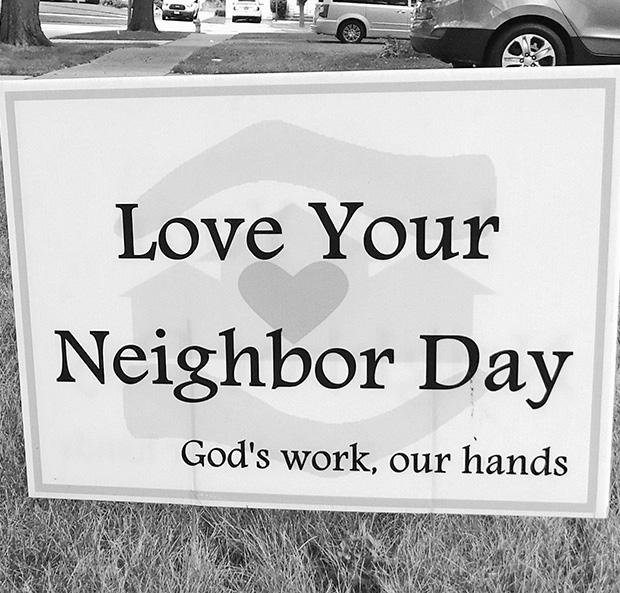 Love Your
Neighbor Day
God's work, our hands